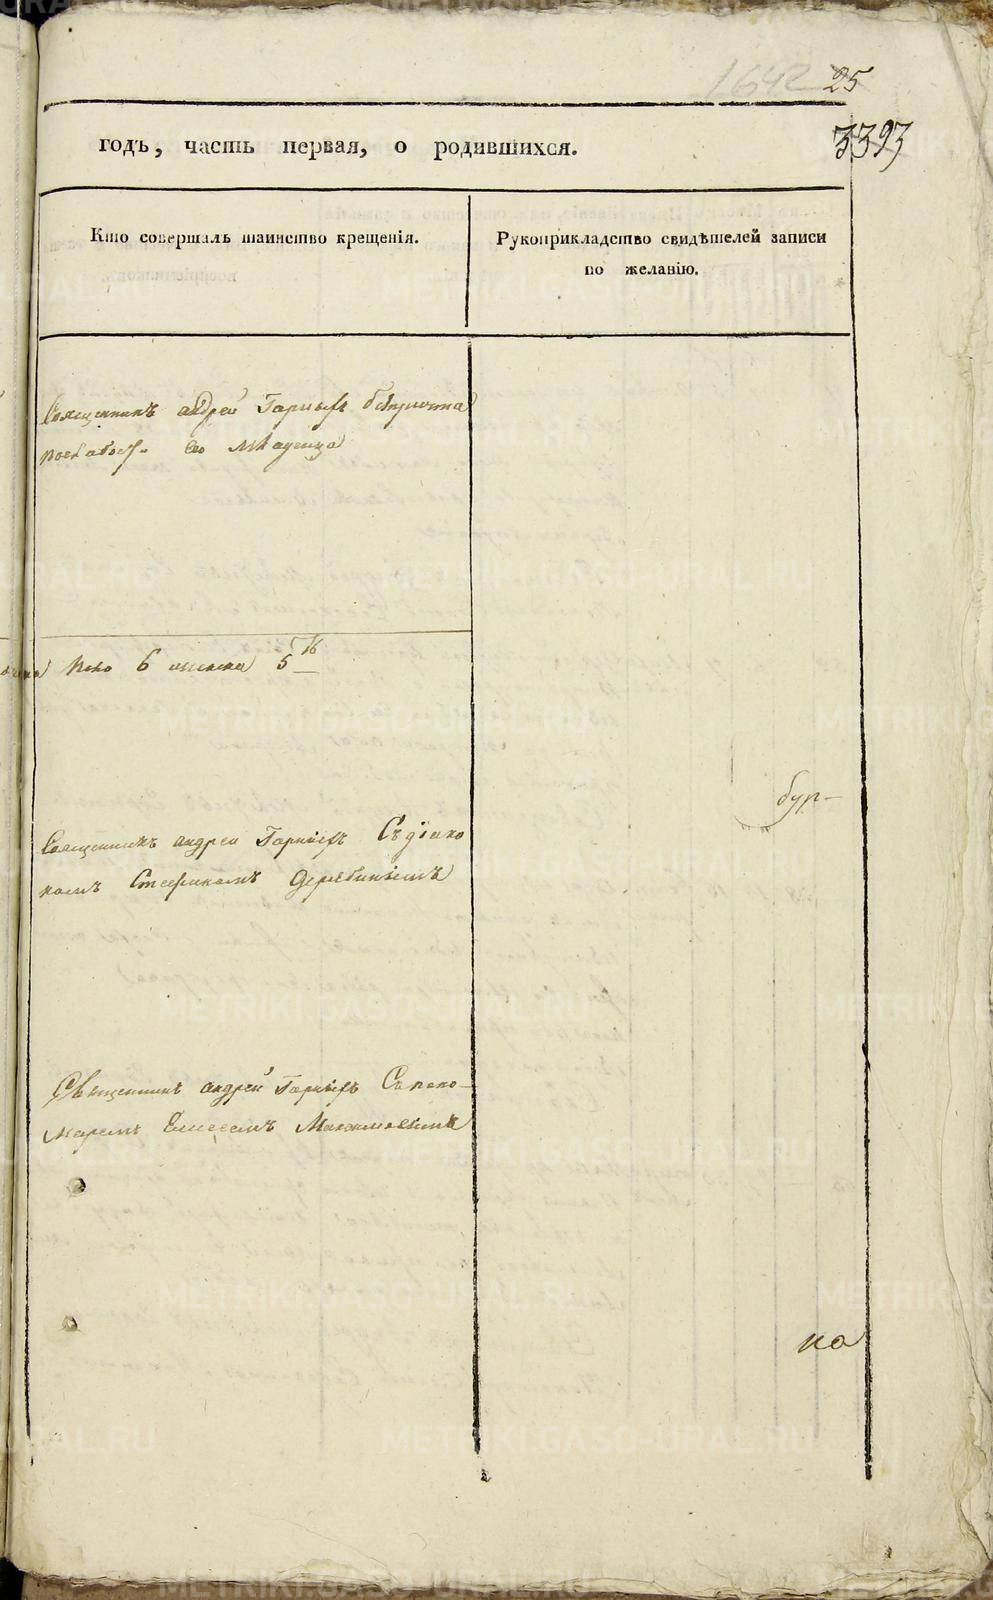 25
3393
годъ, часть первая, о родившихся.
Кто совершалъ таинство крещенія.
Рукоприкладство свидѣтелей записи
по желанію.
Священникъ андрей Гарныхъ
младенца
6
5
бур-
Священникъ андрей Гарныхъ Съ діако
номъ Стефаномъ Дерябинымъ
Священникъ андрей Гарныхъ Съ поно-
маремъ Елисеемъ Максимовымъ
ка
METRIKI.GASO-URAL.RU